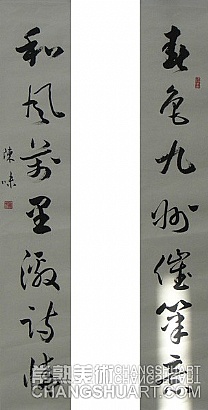 春色九州催笔意
和风万里激诗情
陈味
常熟美術 CHANGSHUART
CHANGSHUART.COM